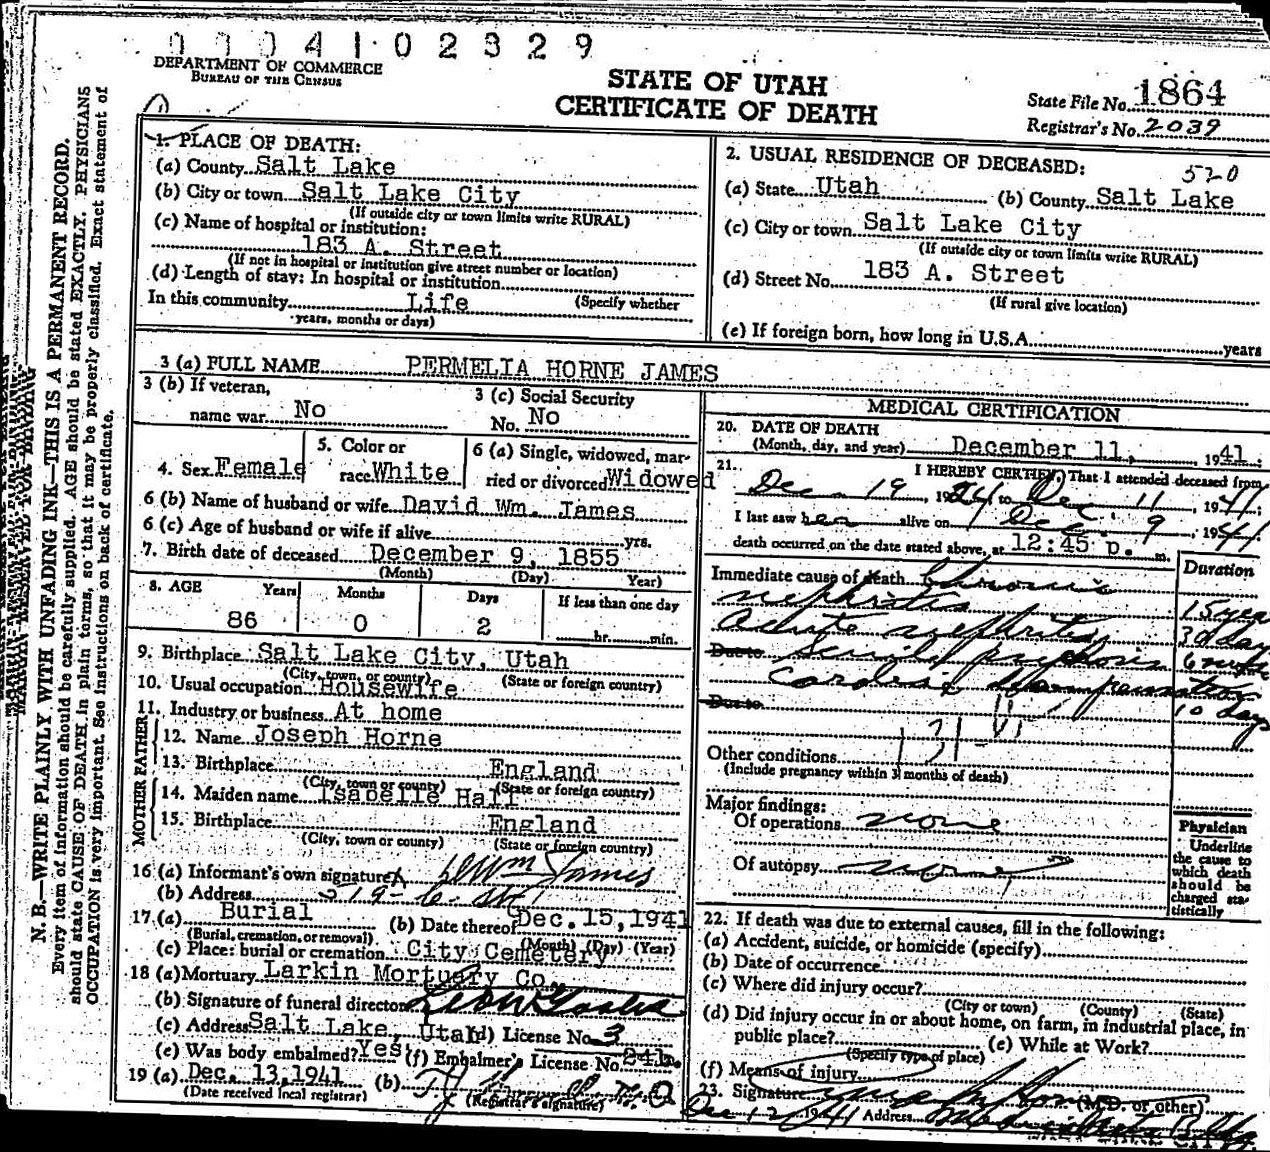 0 0 0 4 1 0 2 3 2 9
DEPARTMENT OF COMMERCE
BUREAU OF THE CENSUS
STATE OF UTAH
CERTIFICATE OF DEATH
State File No. 1864
Registrar's No. 2039
N. B.—WRITE PLAINLY WITH UNFADING INK—THIS IS A PERMANENT RECORD.
Every item of information should be carefully supplied. AGE should be stated EXACTLY. PHYSICIANS
should state CAUSE OF DEATH in plain terms, so that it may be properly classified. Exact statement of
OCCUPATION is very important. See instructions on back of certificate.
1. PLACE OF DEATH:
(a) County Salt Lake
(b) City or town Salt Lake City
(If outside city or town limits write RURAL)
(c) Name of hospital or institution:
183 A. Street
(If not in hospital or institution give street number or location)
(d) Length of stay: In hospital or institution
In this community Life (Specify whether
years, months or days)
2. USUAL RESIDENCE OF DECEASED: 520
(a) State Utah (b) County Salt Lake
(c) City or town Salt Lake City
(If outside city or town limits write RURAL)
(d) Street No. 183 A. Street
(If rural give location)
(e) If foreign born, how long in U.S.A. years
3 (a) FULL NAME PERMELIA HORNE JAMES
3 (b) If veteran, 3 (c) Social Security
name war No No. No
4. Sex Female 5. Color or race White 6 (a) Single, widowed, married or divorced Widowed
6 (b) Name of husband or wife David Wm. James
6 (c) Age of husband or wife if alive yrs.
7. Birth date of deceased December 9, 1855
(Month) (Day) Year)
8. AGE Years Months Days If less than one day
86 0 2 hr. min.
9. Birthplace Salt Lake City, Utah
(City, town, or county) (State or foreign country)
10. Usual occupation Housewife
11. Industry or business At home
FATHER
12. Name Joseph Horne
13. Birthplace England
(City, town or county) (State or foreign country)
MOTHER
14. Maiden name Isabelle Hall
15. Birthplace England
(City, town or county) (State or foreign country)
16 (a) Informant's own signature D Wm James
(b) Address
17. (a) Burial (b) Date thereof Dec. 15, 1941
(Burial, cremation, or removal) (Month) (Day) (Year)
(c) Place: burial or cremation City Cemetery
18 (a) Mortuary Larkin Mortuary Co.
(b) Signature of funeral director
(c) Address Salt Lake, Utah (d) License No. 3
(e) Was body embalmed? Yes (f) Embalmer's License No. 24b.
19 (a) Dec. 13, 1941 (b)
(Date received local registrar) (Registrar's signature)
MEDICAL CERTIFICATION
20. DATE OF DEATH
(Month, day, and year) December 11, 1941
21. I HEREBY CERTIFY, That I attended deceased from
Dec. 19, to Dec. 11, 1941;
I last saw her alive on Dec 9, 1941;
death occurred on the date stated above, at 12:45 p. m.
Duration
Immediate cause of death Chronic
nephritis 15 year
Acute nephritis 30 day
Due to Senile psychosis 6
Cardiac decompensation
Due to 10 days
131-
Other conditions
(Include pregnancy within 3 months of death)
Major findings:
Of operations none
Of autopsy none
Physician
Underline
the cause to
which death
should be
charged sta-
tistically
22. If death was due to external causes, fill in the following:
(a) Accident, suicide, or homicide (specify)
(b) Date of occurrence
(c) Where did injury occur?
(City or town) (County) (State)
(d) Did injury occur in or about home, on farm, in industrial place, in
public place? (e) While at Work?
(Specify type of place)
(f) Means of injury
23. Signature (M.D. or other)
Dec 12 1941 Address